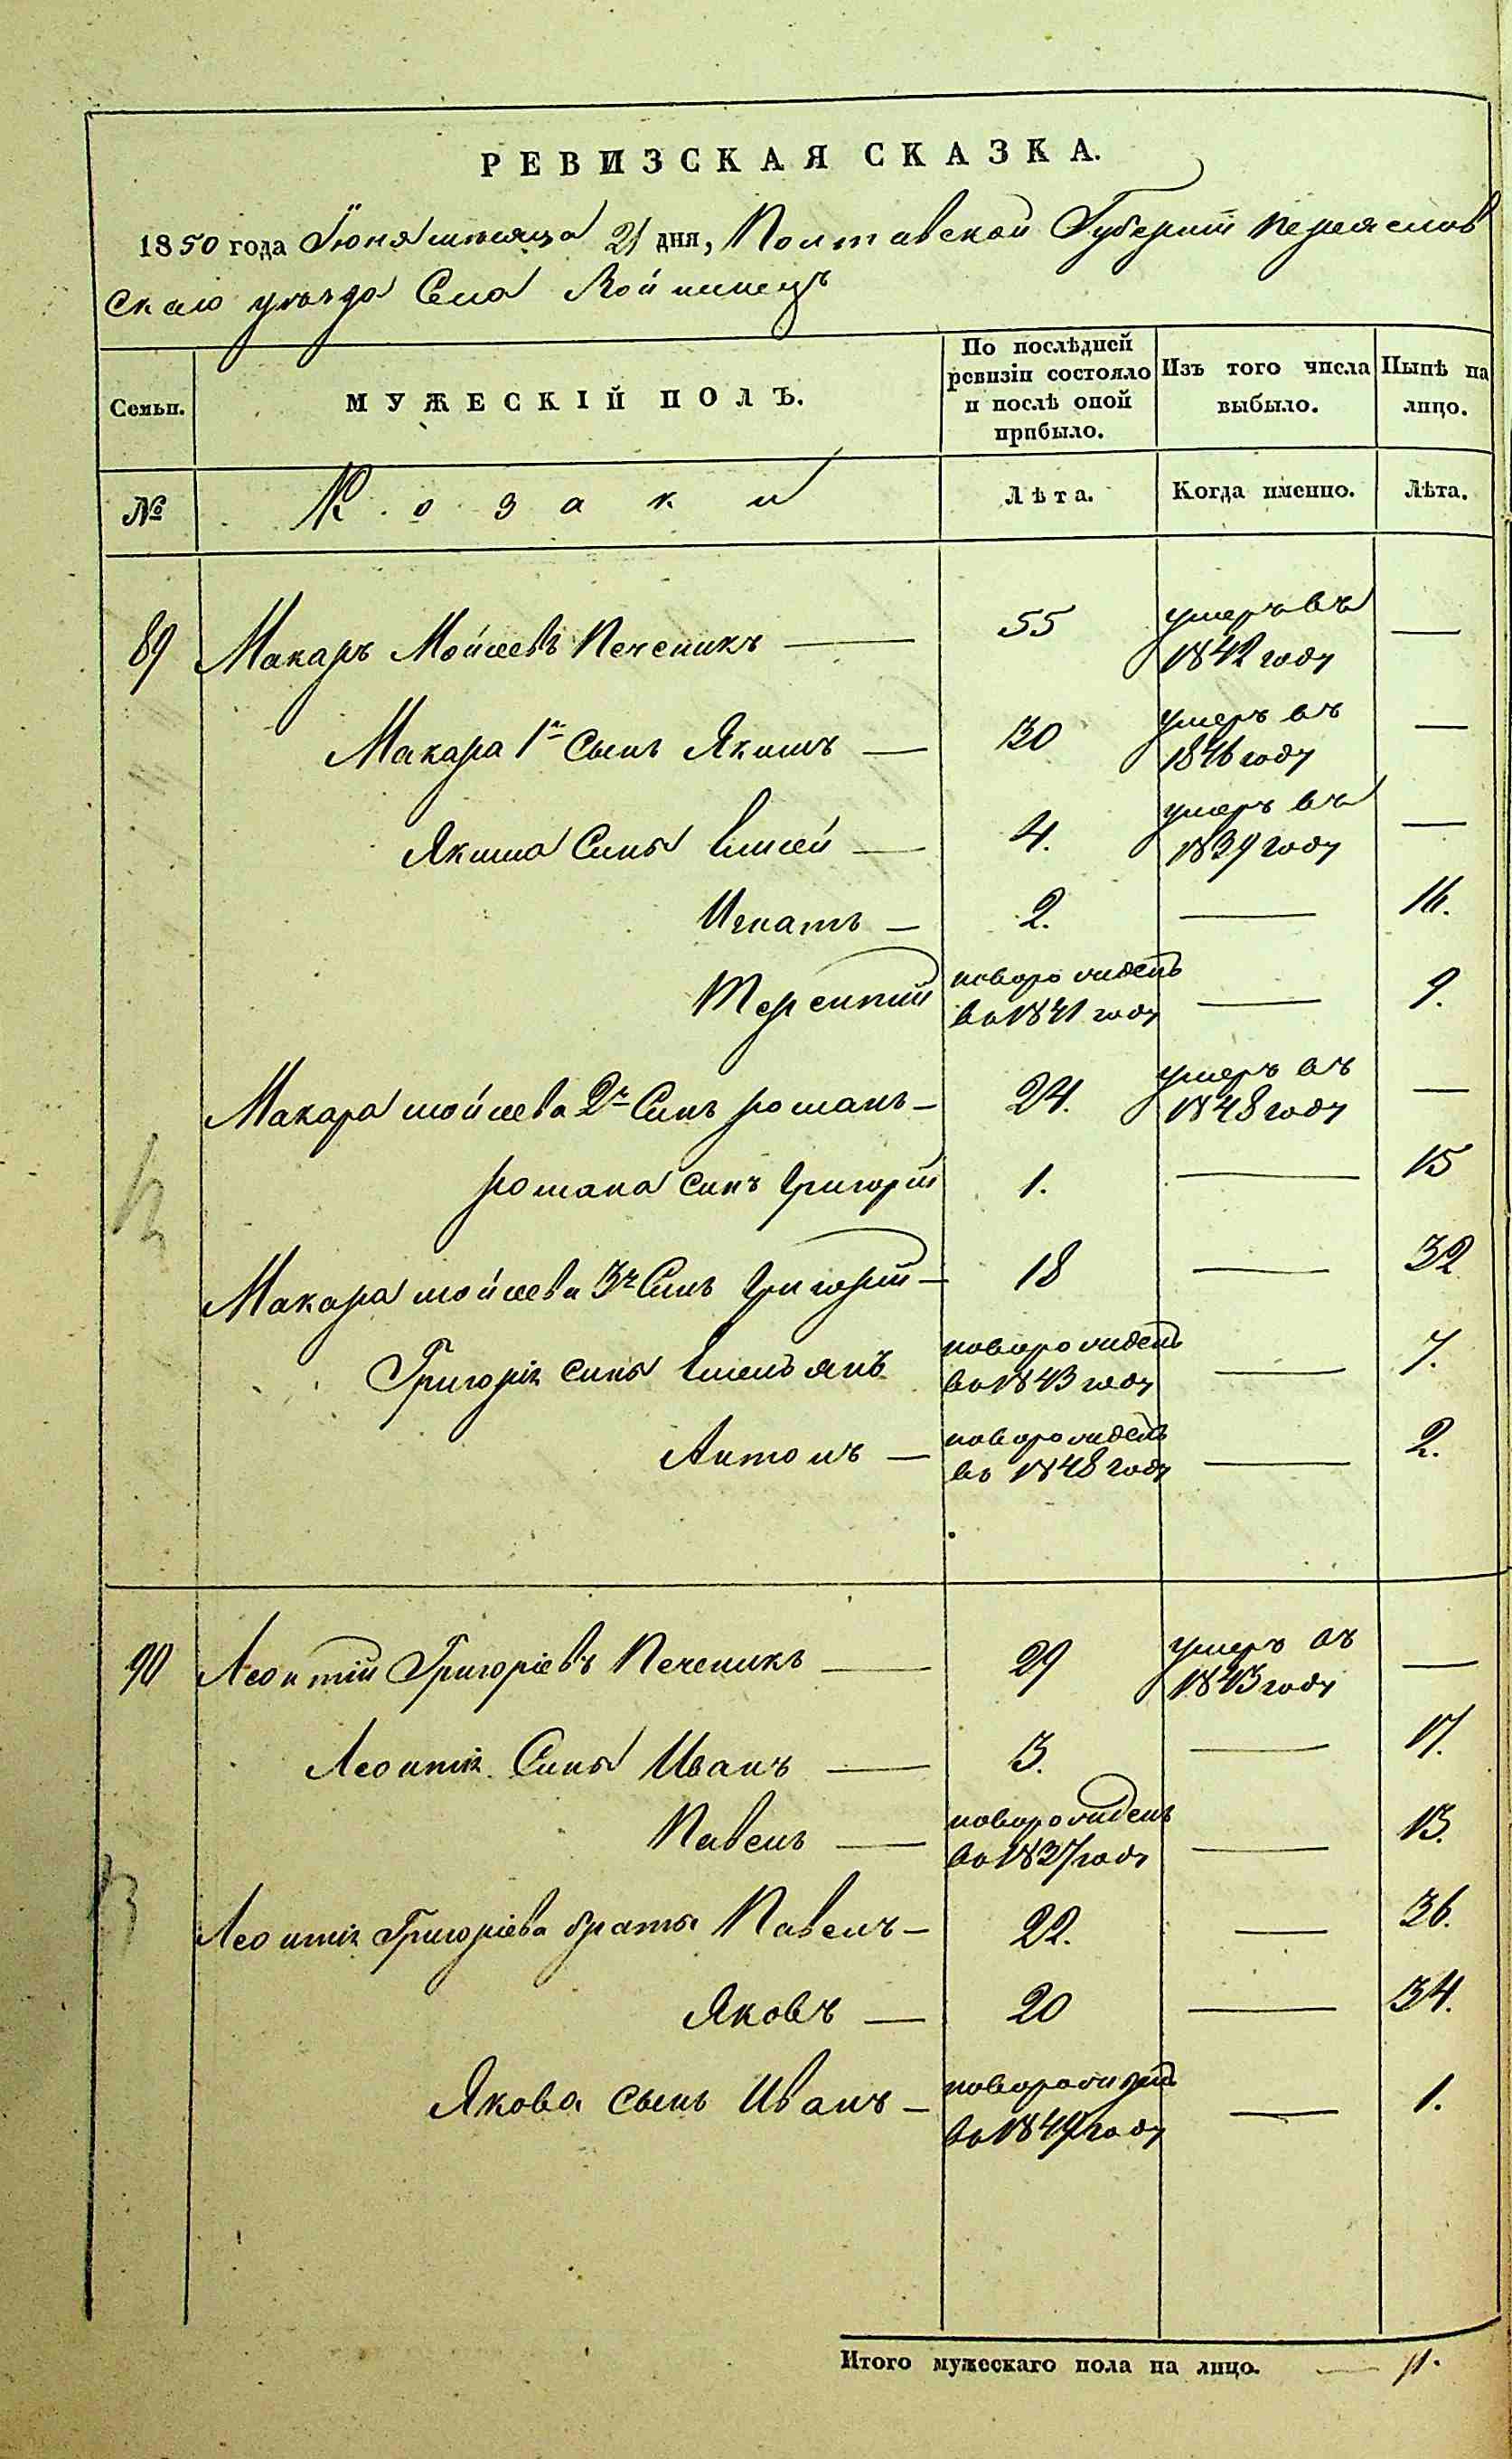 РЕВИЗСКАЯ СКАЗКА.
1850 года Іюня мѣсяца 21 дня, Полтавской Губерніи Переяслов
скаго уѣзда Села Войнинецъ
Семьи.
МУЖЕСКІЙ ПОЛЪ.
По послѣдней ревизіи состояло и послѣ оной прибыло.
Изъ того числа выбыло.
Нынѣ на лицо.
№
Козаки
Лѣта.
Когда именно.
Лѣта.
89 Макаръ Мойсеевъ Печеникъ — 55 умеръ въ 1842 году —
Макара 1й сынъ Якимъ — 30 умеръ въ 1846 году —
Якима Сины Елисей — 4. умеръ въ 1839 году —
Игнатъ — 2. — 16.
Терентій новорожденъ во 1841 году — 9.
Макара мойсеева 2й Синъ романъ — 24. умеръ въ 1848 году —
романа синъ Григорій 1. — 15
Макара мойсеева 3й Синъ Григорій — 18 — 32
Григорія сины Емельянъ новорожденъ во 1843 году — 7.
Антонъ — новорожденъ во 1848 году — 2.
90 Леонтій Григоріевъ Печеникъ — 29 умеръ въ 1843 году —
Леонтія Сины Иванъ — 3. — 17.
Павелъ — новорожденъ во 1837 году — 13.
Леонтія Григоріева браты Павелъ — 22. — 36.
Яковъ — 20 — 34.
Якова сынъ Иванъ — новорожденъ во 1849 году — 1.
Итого мужескаго пола на лицо. — 11.